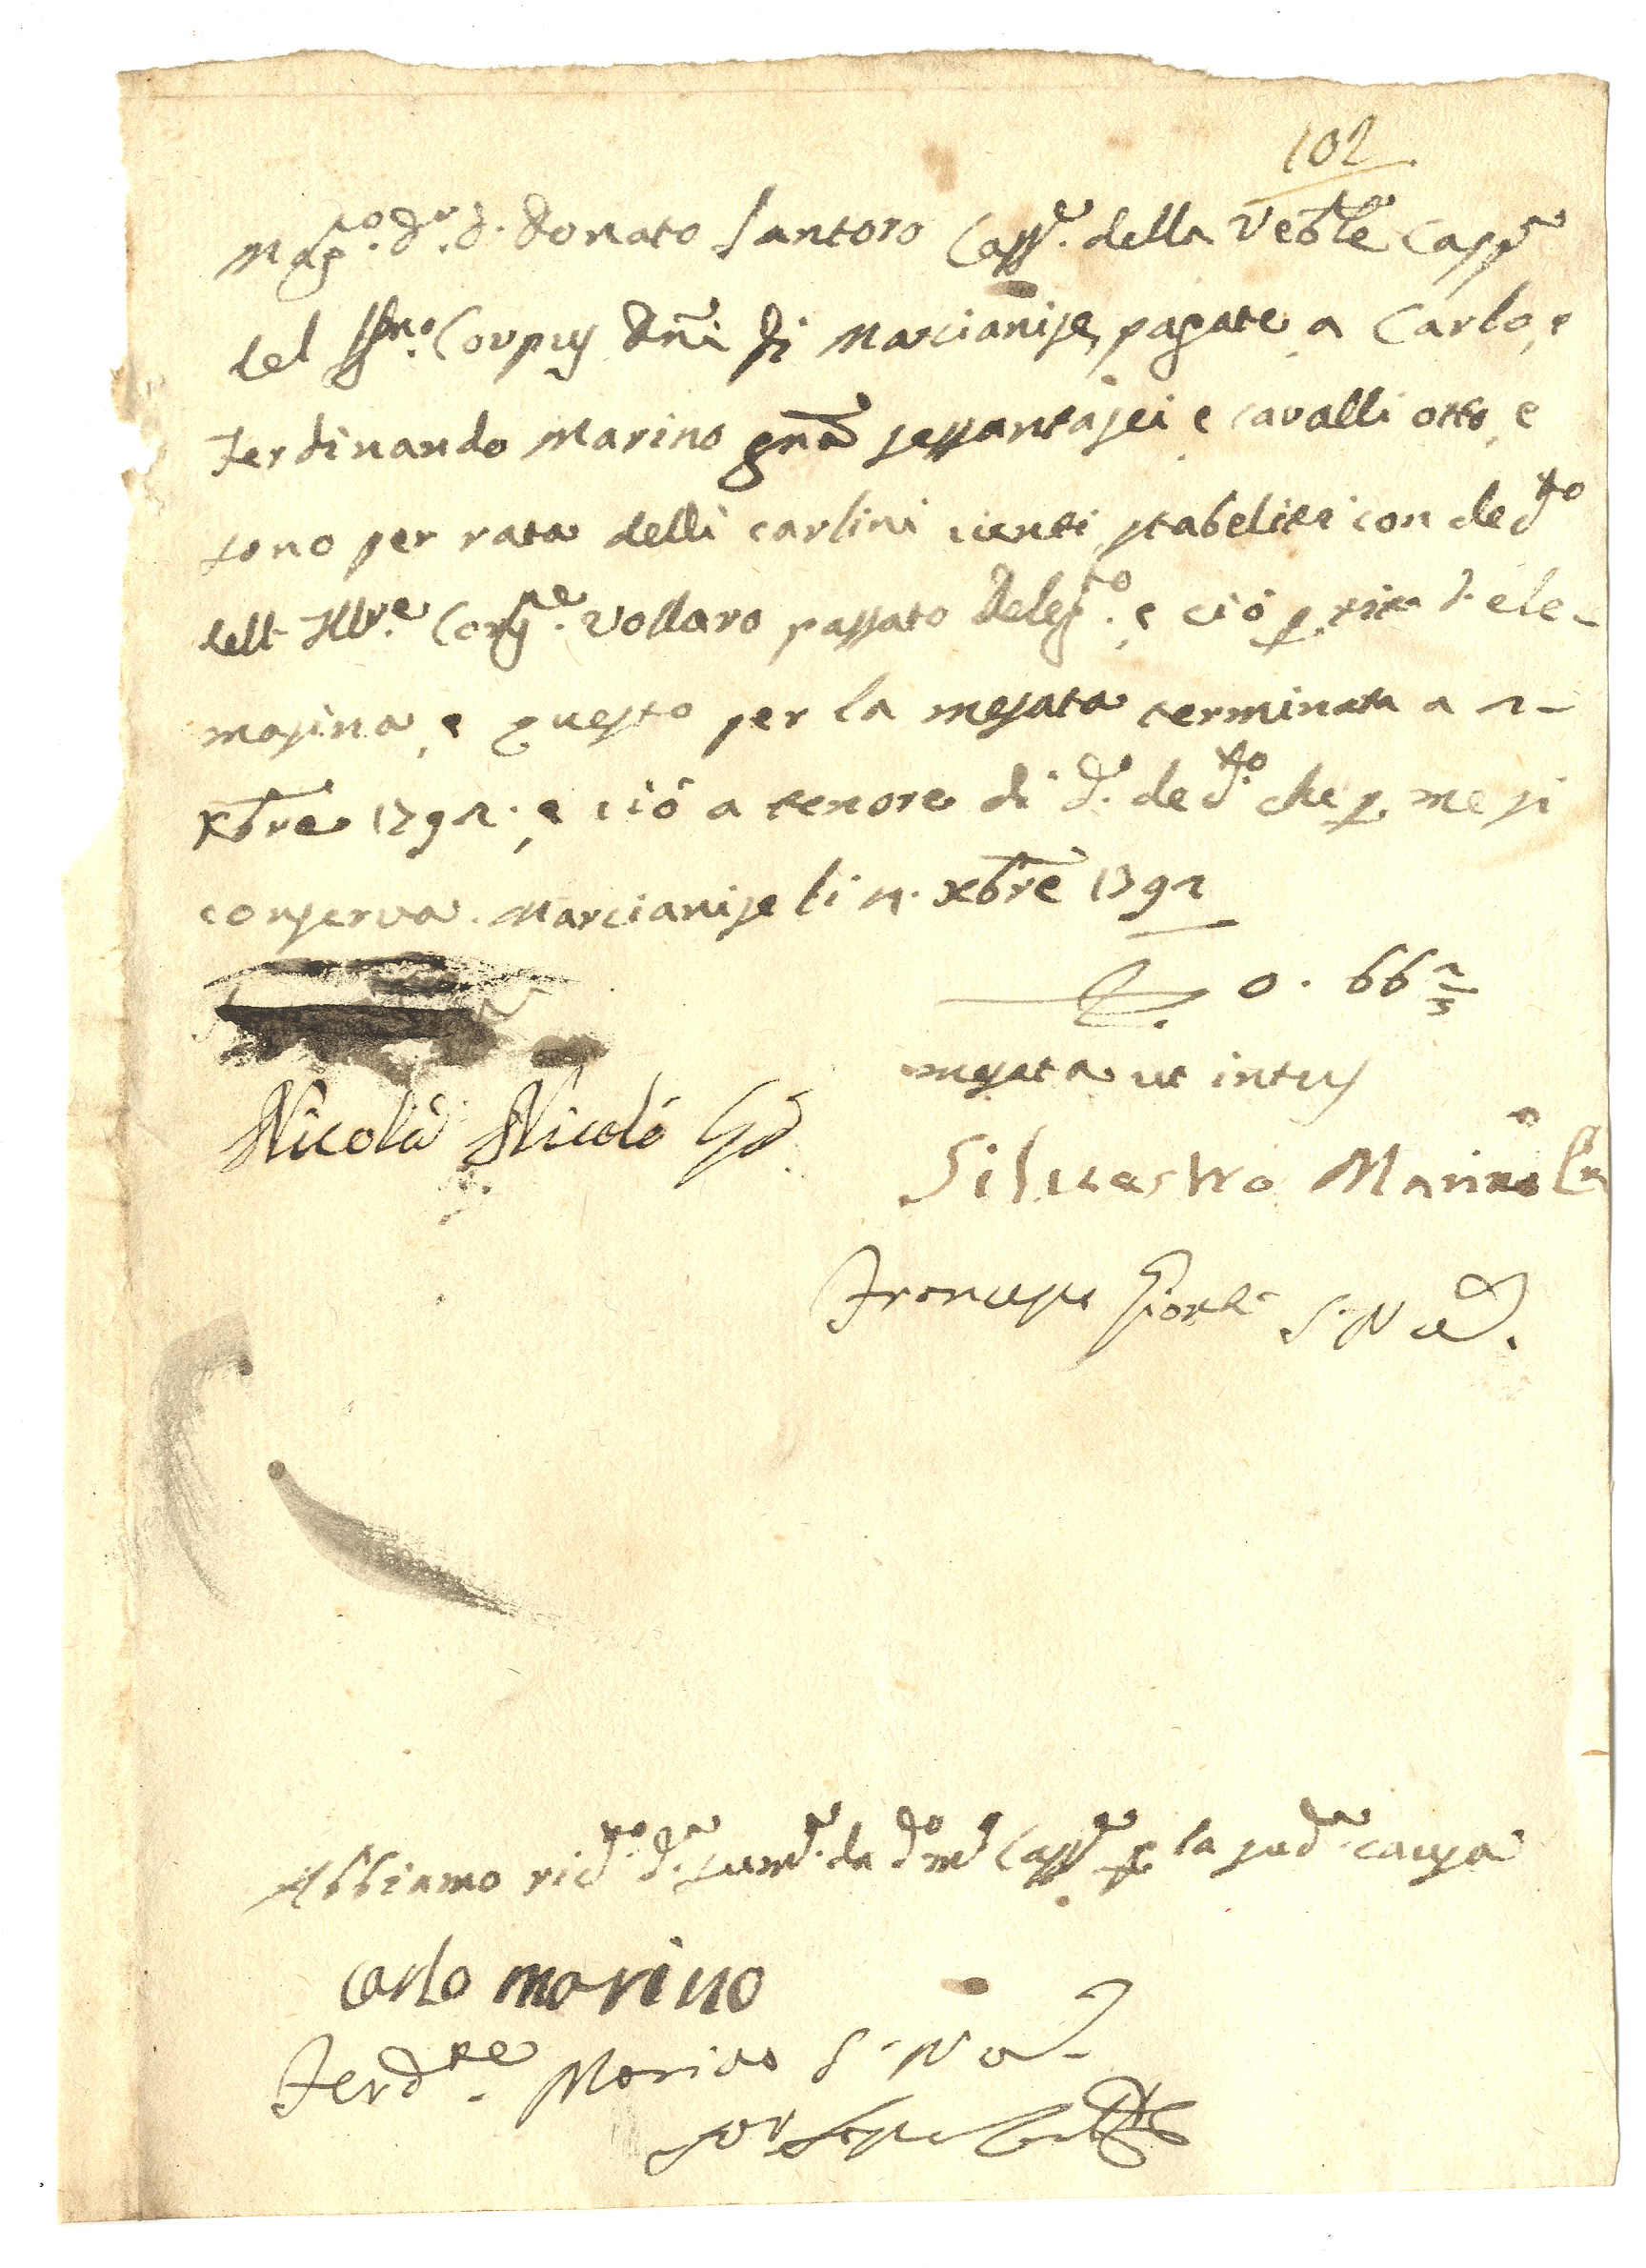 102
Mag.co Dr. D. Donato Santoro Cass.re della Veble Capp.a
del SSmo. Corpus Dni di Marcianise, pagate a Carlo, e
Ferdinando Marino grna sessantasei e cavalli otto, e
sono per rata delli carlini venti stabeliti con dec.to
dell' Ill.re Consig.re Vollaro passato Deleg.to, e ciò per via d. ele-
mosina, e questo per la mesata terminata a 2-
Xbre 1792. e ciò a tenore di d.o dec.to che per me si
conserva. Marcianise li 2. Xbre 1792
0. 66 2/3
mesata ut intus
Nicola Nicolò
Silvestro Marino
Francesco
Abbiamo ric.to d.a summ.a da d.o m.co Cass.re per la sud.a causa
Carlo marino
Ferd.te Marino